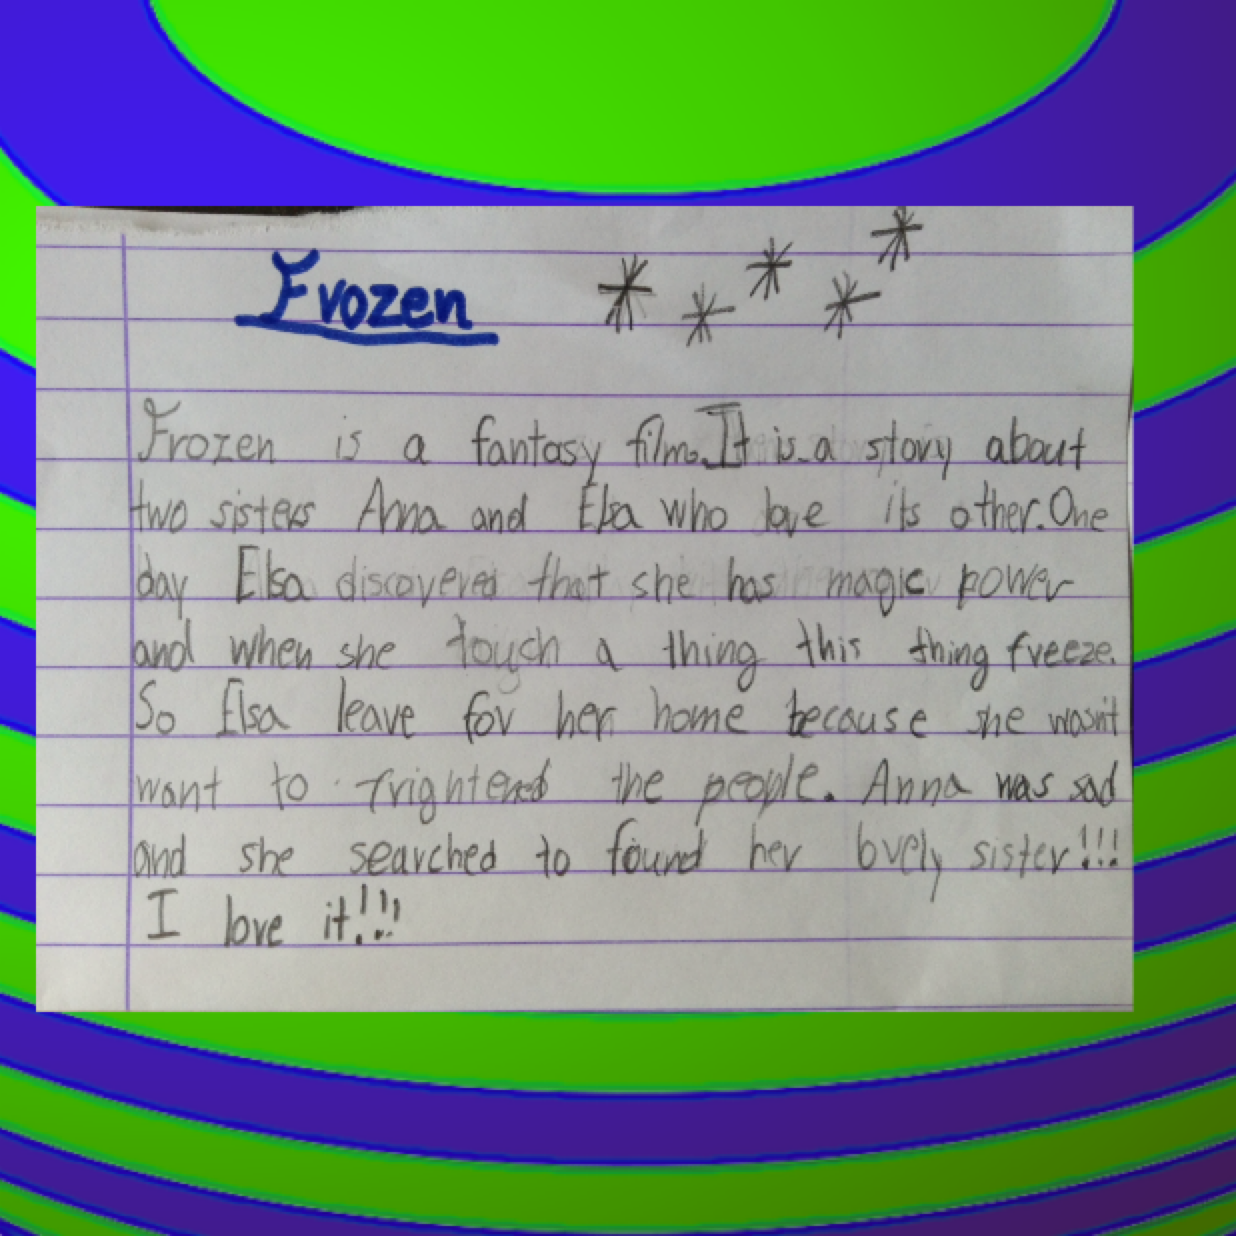 Frozen
Frozen is a fantasy film. It is a story about
two sisters Anna and Elsa who love its other. One
day Elsa discovered that she has magic power
and when she touch a thing this thing freeze.
So Elsa leave for her home because she wasn't
want to frightened the people. Anna was sad
and she searched to found her lovely sister!!!
I love it!!!